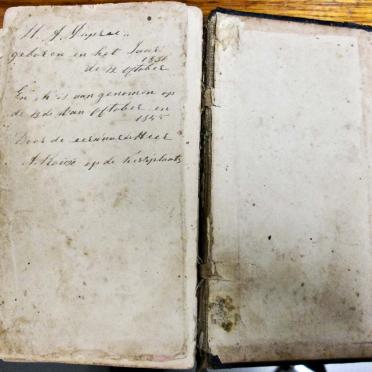 geboren in het Jaar
1836
de 12 October
En is aangenomen op
de 13 de van October en
1855
Door de eerwaarde Heer
op de kerkplaats